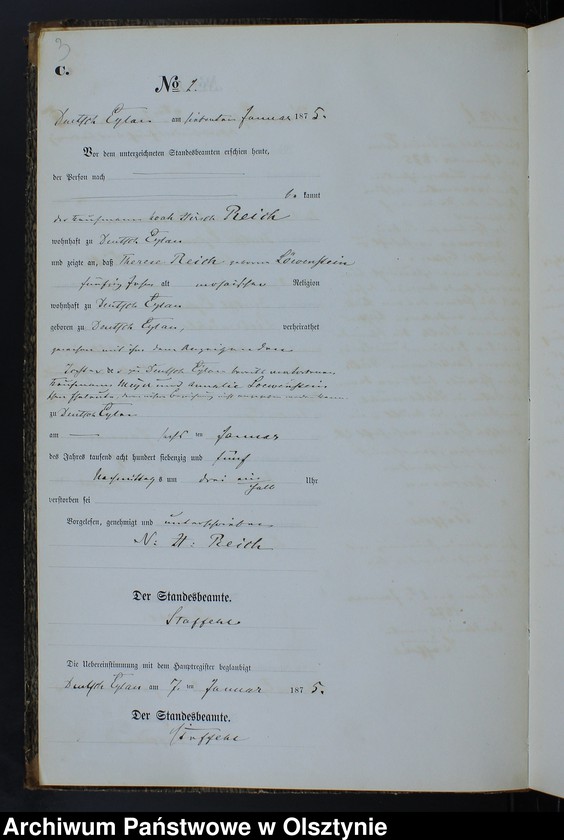 3
C.
No 2.
Deutsch Eylau am siebenten Januar 1875.
Vor dem unterzeichneten Standesbeamten erschien heute,
der Person nach
be kannt
der Kaufmann Noah Hirsch Reich
wohnhaft zu Deutsch Eylau
und zeigte an, daß Therese Reich geborne Löwenstein
fünfzig Jahr alt mosaischer Religion
wohnhaft zu Deutsch Eylau
geboren zu Deutsch Eylau, verheirathet
gewesen mit ihm dem Anzeigenden
Tochter der zu Deutsch Eylau bereits verstorbenen
Kaufmann Meyer und Amalie Loewenstein
Eheleute,
zu Deutsch Eylau
am sechs ten Januar
des Jahres tausend acht hundert siebenzig und fünf
Nachmittags um drei ein halb Uhr
verstorben sei
Vorgelesen, genehmigt und unterschrieben
N: H: Reich
Der Standesbeamte.
Staffehl
Die Uebereinstimmung mit dem Hauptregister beglaubigt
Deutsch Eylau am 7. ten Januar 1875.
Der Standesbeamte.
Staffehl
Archiwum Państwowe w Olsztynie